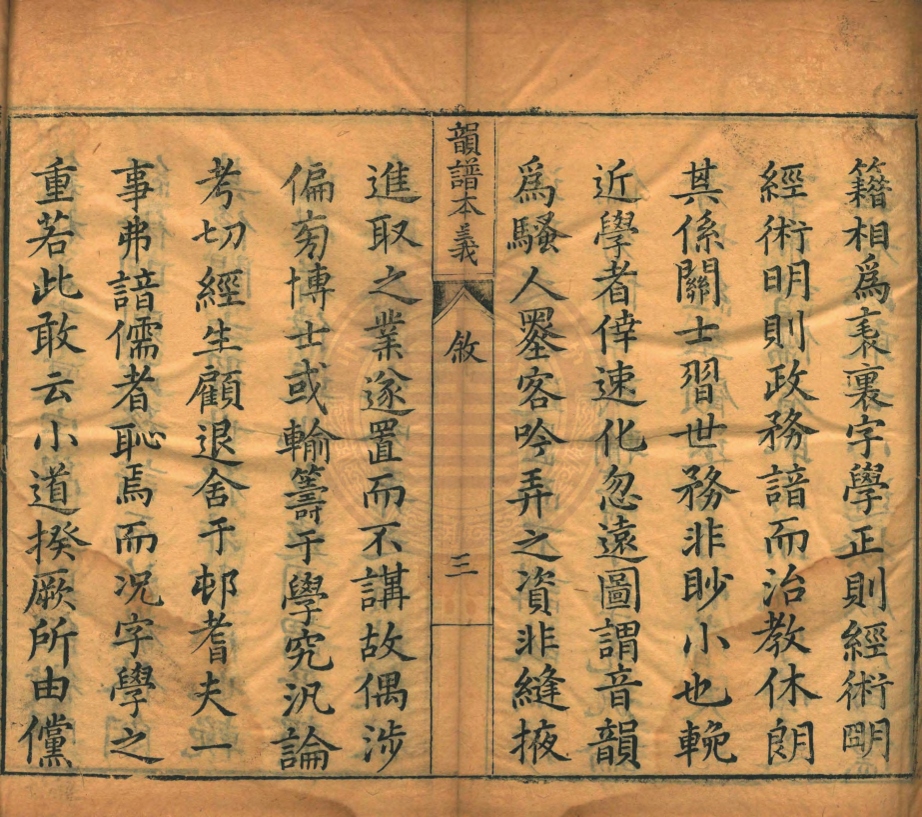 籍相爲表裏字學正則經術明
經術明則政務諳而治教休朗
其係關士習世務非眇小也輓
近學者倖速化忽遠圖謂音韻
爲騷人墨客吟弄之資非縫掖
韻譜本義
敘
三
進取之業遂置而不講故偶涉
偏旁博士或輸籌于學究汎論
考切經生顧退舍于邨耆夫一
事弗諳儒者恥焉而況字學之
重若此敢云小道揆厥所由儻